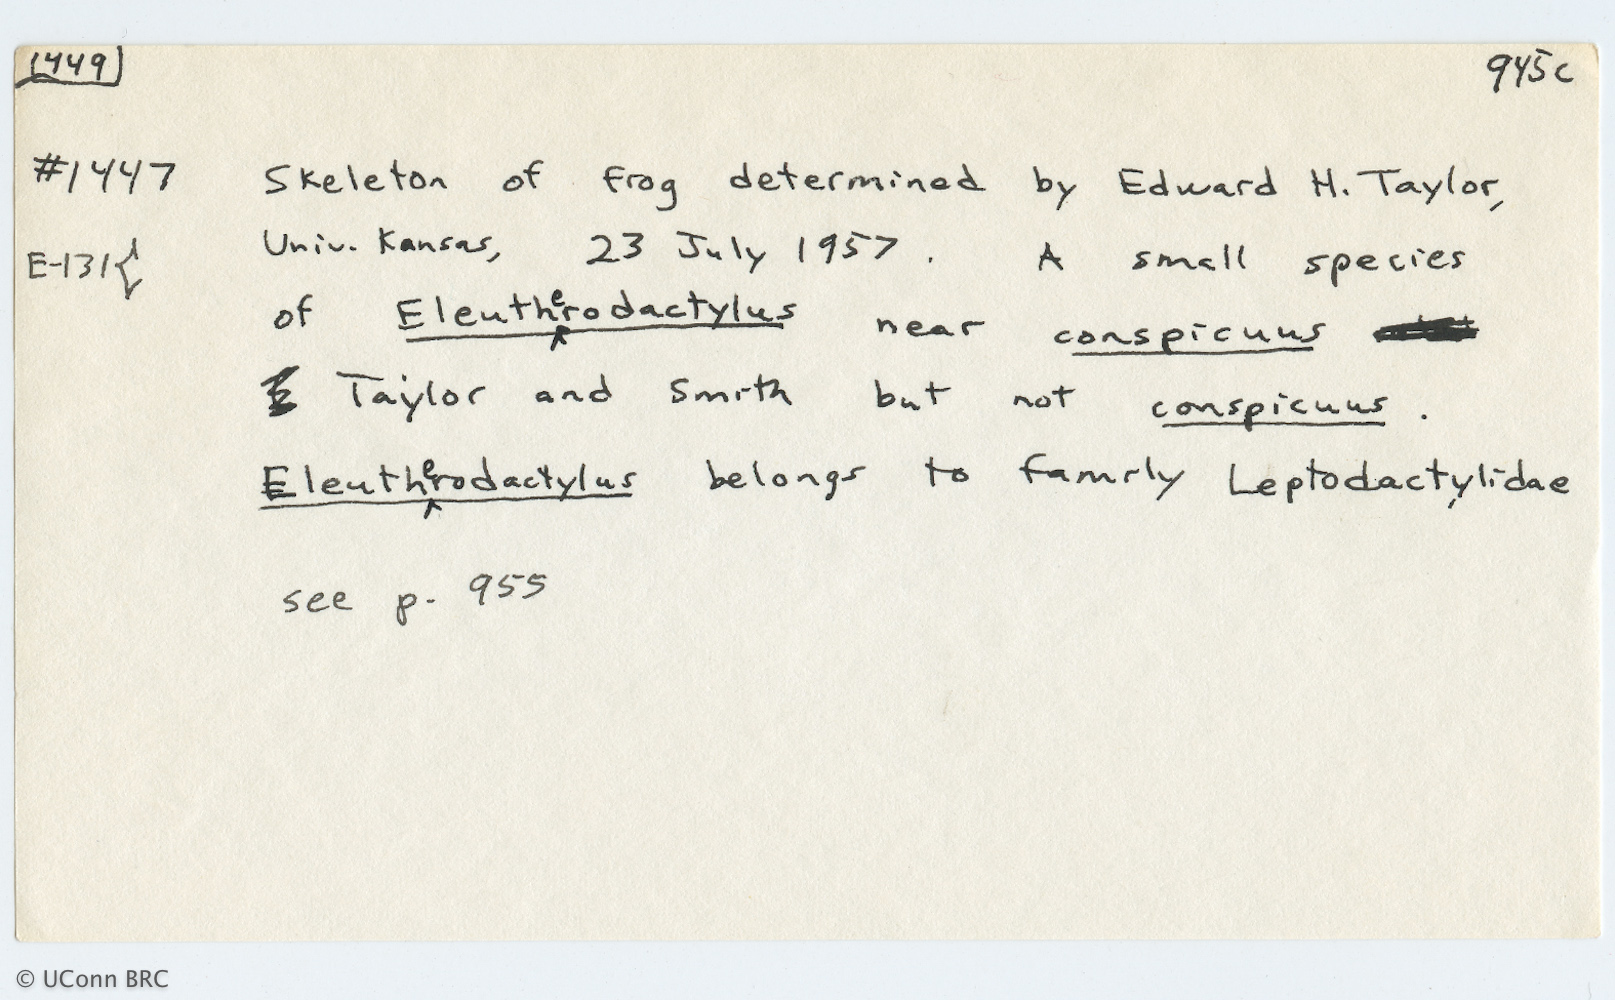 1449
945c
#1447 Skeleton of frog determined by Edward H. Taylor,
Univ. Kansas, 23 July 1957. A small species
E-131{
of Eleutherodactylus near conspicuus
Taylor and Smith but not conspicuus.
Eleutherodactylus belongs to family Leptodactylidae
see p. 955
© UConn BRC